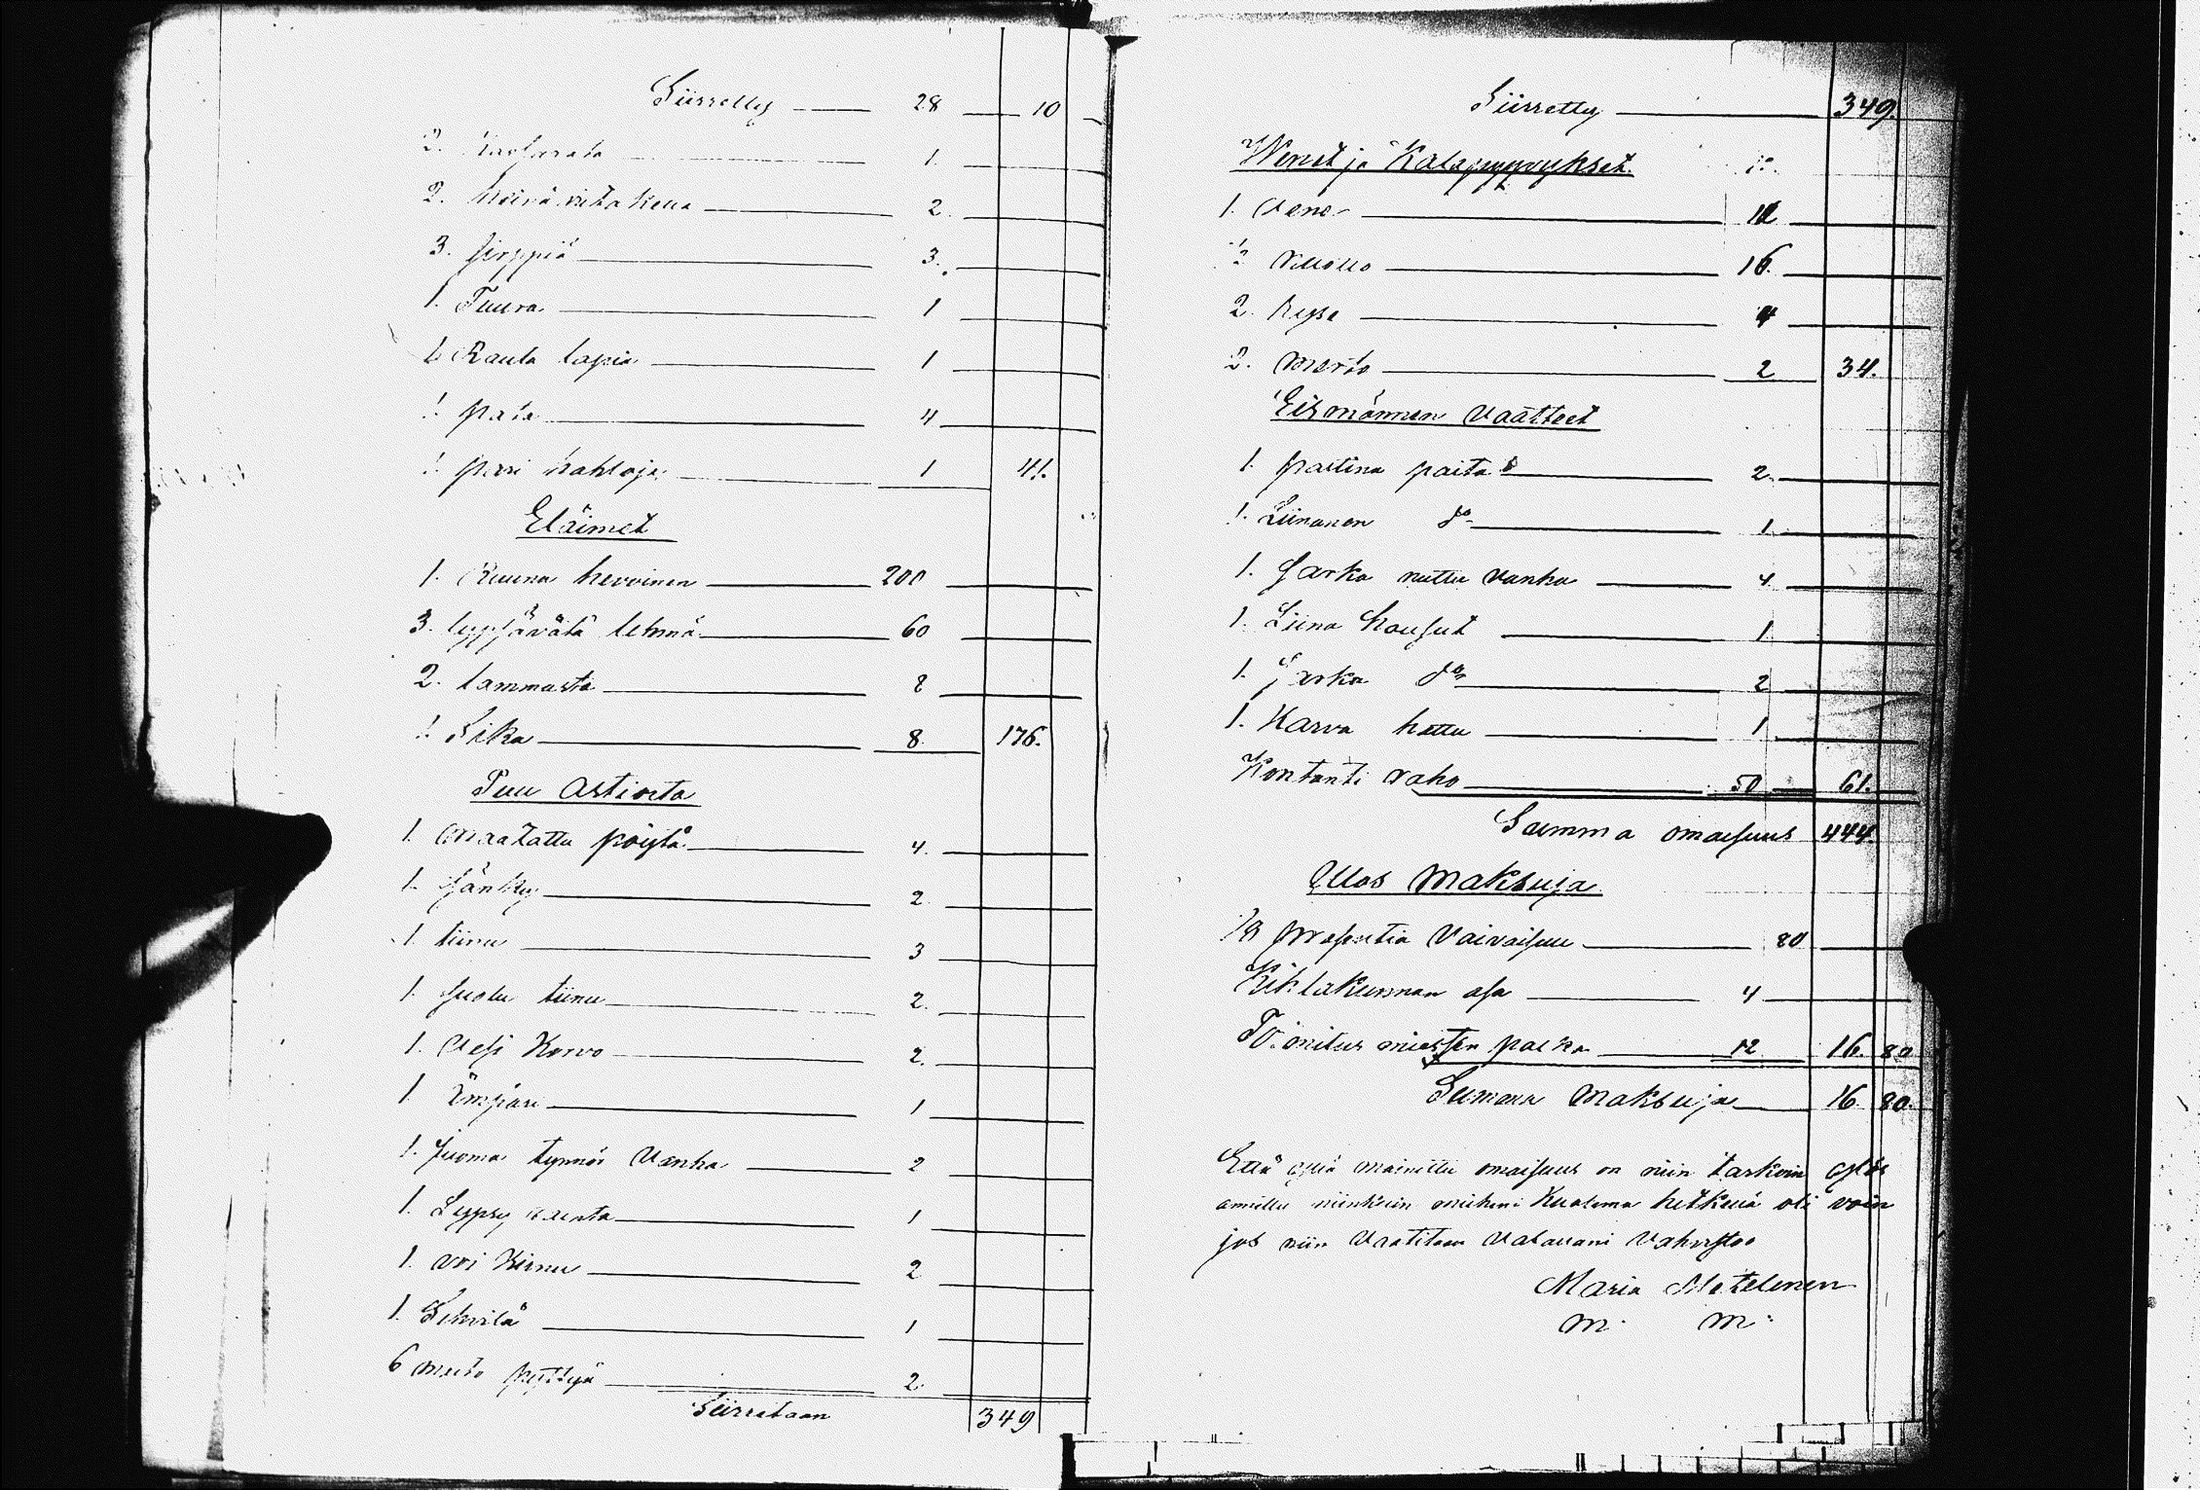 Siirretty 28 10
2. 1.
2. heinä viitaketta 2.
3. sirppiä 3.
1. Tuura 1
1. Rauta lapia 1
1. pata 4
1. pari 1 41.
Eläimet
1. Ruuna hevoinen 200
3. lypsävätä lehmä 60
2. lammasta 8
1. Sika 8. 176.
Puu Astioita
1. maalattu pöytä 4.
1. sänky 2.
1. tiinu 3
1. suola tiinu 2.
1. Vesi Korvo 2.
1 Ämpäri 1
1. Juoma tynnör vanha 2
1. Lypsy rainta 1
1. voi Kirnu 2
1. Sihvilä 1
6 maito pyttyä 2.
Siirretaan 349
Siirretty 349.
Wenet ja Kalapyyvykset.
1. Vene 12
16.
2. Rysä 4
2. merta 2 34.
Eismännen vaatteet
1. paitina paita 2.
1. Liinanen do 1.
1. Sarka nuttu vanha 4.
1. Liina housut 1
1. Sarka do 2
1. Karva hattu 1
Kontanti raha 50 61.
Summa omaisuus 444.
Ulos Maksuja
prosentia Vaivaisuu 80
Kihlakunnan osa 4
Toimitus miesten palka 12 16. 80
Summa Maksuja 16. 80.
Että mainittu omaisuus on niin tarkoin
annettu niinkuin mieheni Kuolema hetkellä oli voin
jos niin Vaatitaan Valallani Vahvistaa
Maria Metelinen
m. m.